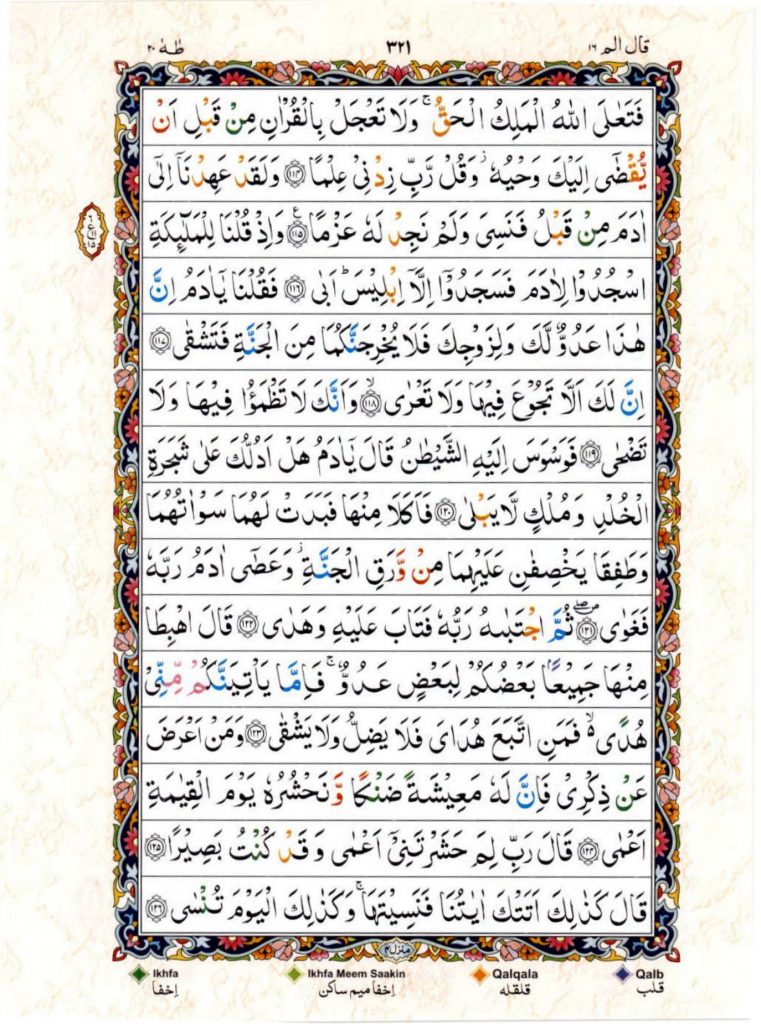 قال الم ١٦ ٣٢١ طٰهٰ ٢٠
فَتَعٰلَى اللّٰهُ الْمَلِكُ الْحَقُّ ۚ وَلَا تَعْجَلْ بِالْقُرْاٰنِ مِنْ قَبْلِ اَنْ
يُّقْضٰٓى اِلَيْكَ وَحْيُهٗ ؗ وَقُلْ رَّبِّ زِدْنِيْ عِلْمًا ۝۱۱۴ وَلَقَدْ عَهِدْنَاۤ اِلٰٓى
اٰدَمَ مِنْ قَبْلُ فَنَسِيَ وَلَمْ نَجِدْ لَهٗ عَزْمًا ۝۱۱۵ ع وَاِذْ قُلْنَا لِلْمَلٰٓئِكَةِ
اسْجُدُوْا لِاٰدَمَ فَسَجَدُوْۤا اِلَّاۤ اِبْلِيْسَ ؕ اَبٰى ۝۱۱۶ فَقُلْنَا يٰۤاٰدَمُ اِنَّ
هٰذَا عَدُوٌّ لَّكَ وَلِزَوْجِكَ فَلَا يُخْرِجَنَّكُمَا مِنَ الْجَنَّةِ فَتَشْقٰى ۝۱۱۷
اِنَّ لَكَ اَلَّا تَجُوْعَ فِيْهَا وَلَا تَعْرٰى ۝۱۱۸ ۙ وَاَنَّكَ لَا تَظْمَؤُا فِيْهَا وَلَا
تَضْحٰى ۝۱۱۹ فَوَسْوَسَ اِلَيْهِ الشَّيْطٰنُ قَالَ يٰۤاٰدَمُ هَلْ اَدُلُّكَ عَلٰى شَجَرَةِ
الْخُلْدِ وَمُلْكٍ لَّا يَبْلٰى ۝۱۲۰ فَاَكَلَا مِنْهَا فَبَدَتْ لَهُمَا سَوْاٰتُهُمَا
وَطَفِقَا يَخْصِفٰنِ عَلَيْهِمَا مِنْ وَّرَقِ الْجَنَّةِ ؗ وَعَصٰٓى اٰدَمُ رَبَّهٗ
فَغَوٰى ۝۱۲۱ ثُمَّ اجْتَبٰىهُ رَبُّهٗ فَتَابَ عَلَيْهِ وَهَدٰى ۝۱۲۲ قَالَ اهْبِطَا
مِنْهَا جَمِيْعًۢا بَعْضُكُمْ لِبَعْضٍ عَدُوٌّ ۚ فَاِمَّا يَاْتِيَنَّكُمْ مِّنِّيْ
هُدًى ۙ فَمَنِ اتَّبَعَ هُدَايَ فَلَا يَضِلُّ وَلَا يَشْقٰى ۝۱۲۳ وَمَنْ اَعْرَضَ
عَنْ ذِكْرِيْ فَاِنَّ لَهٗ مَعِيْشَةً ضَنْكًا وَّنَحْشُرُهٗ يَوْمَ الْقِيٰمَةِ
اَعْمٰى ۝۱۲۴ قَالَ رَبِّ لِمَ حَشَرْتَنِيْۤ اَعْمٰى وَقَدْ كُنْتُ بَصِيْرًا ۝۱۲۵
قَالَ كَذٰلِكَ اَتَتْكَ اٰيٰتُنَا فَنَسِيْتَهَا ۚ وَكَذٰلِكَ الْيَوْمَ تُنْسٰى ۝۱۲۶
منزل ۴
Ikhfa Ikhfa Meem Saakin Qalqala Qalb
اِخفا اِخفا میم ساکن قلقله قلب